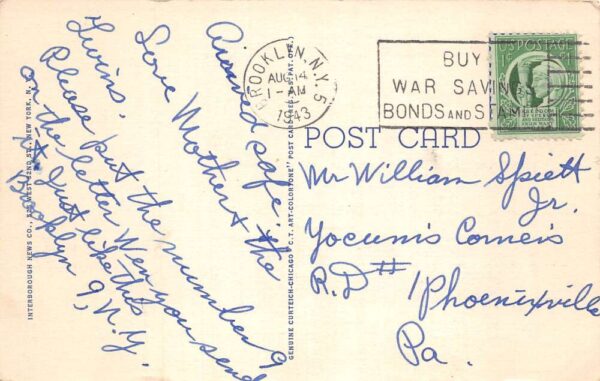 Arrived safe.
Love Mother & the
Twins.
Please put the number 9
on the letter Wen you send
it Just like this
Brooklyn 9, N.Y.
INTERBOROUGH NEWS CO., WEST 42ND ST., NEW YORK, N.
GENUINE CURTEICH-CHICAGO "C.T. ART-COLORTONE" POST CARD (REG. U.S. PAT. OFF.)
BROOKLYN, N.Y. 5
AUG 14
1-AM
1943
BUY
WAR SAVINGS
BONDS AND STAMPS
U.S. POSTAGE
POST CARD
Mr William Spiett
Jr.
Yocum's Corners
R.D# 1 Phoenixville
Pa.